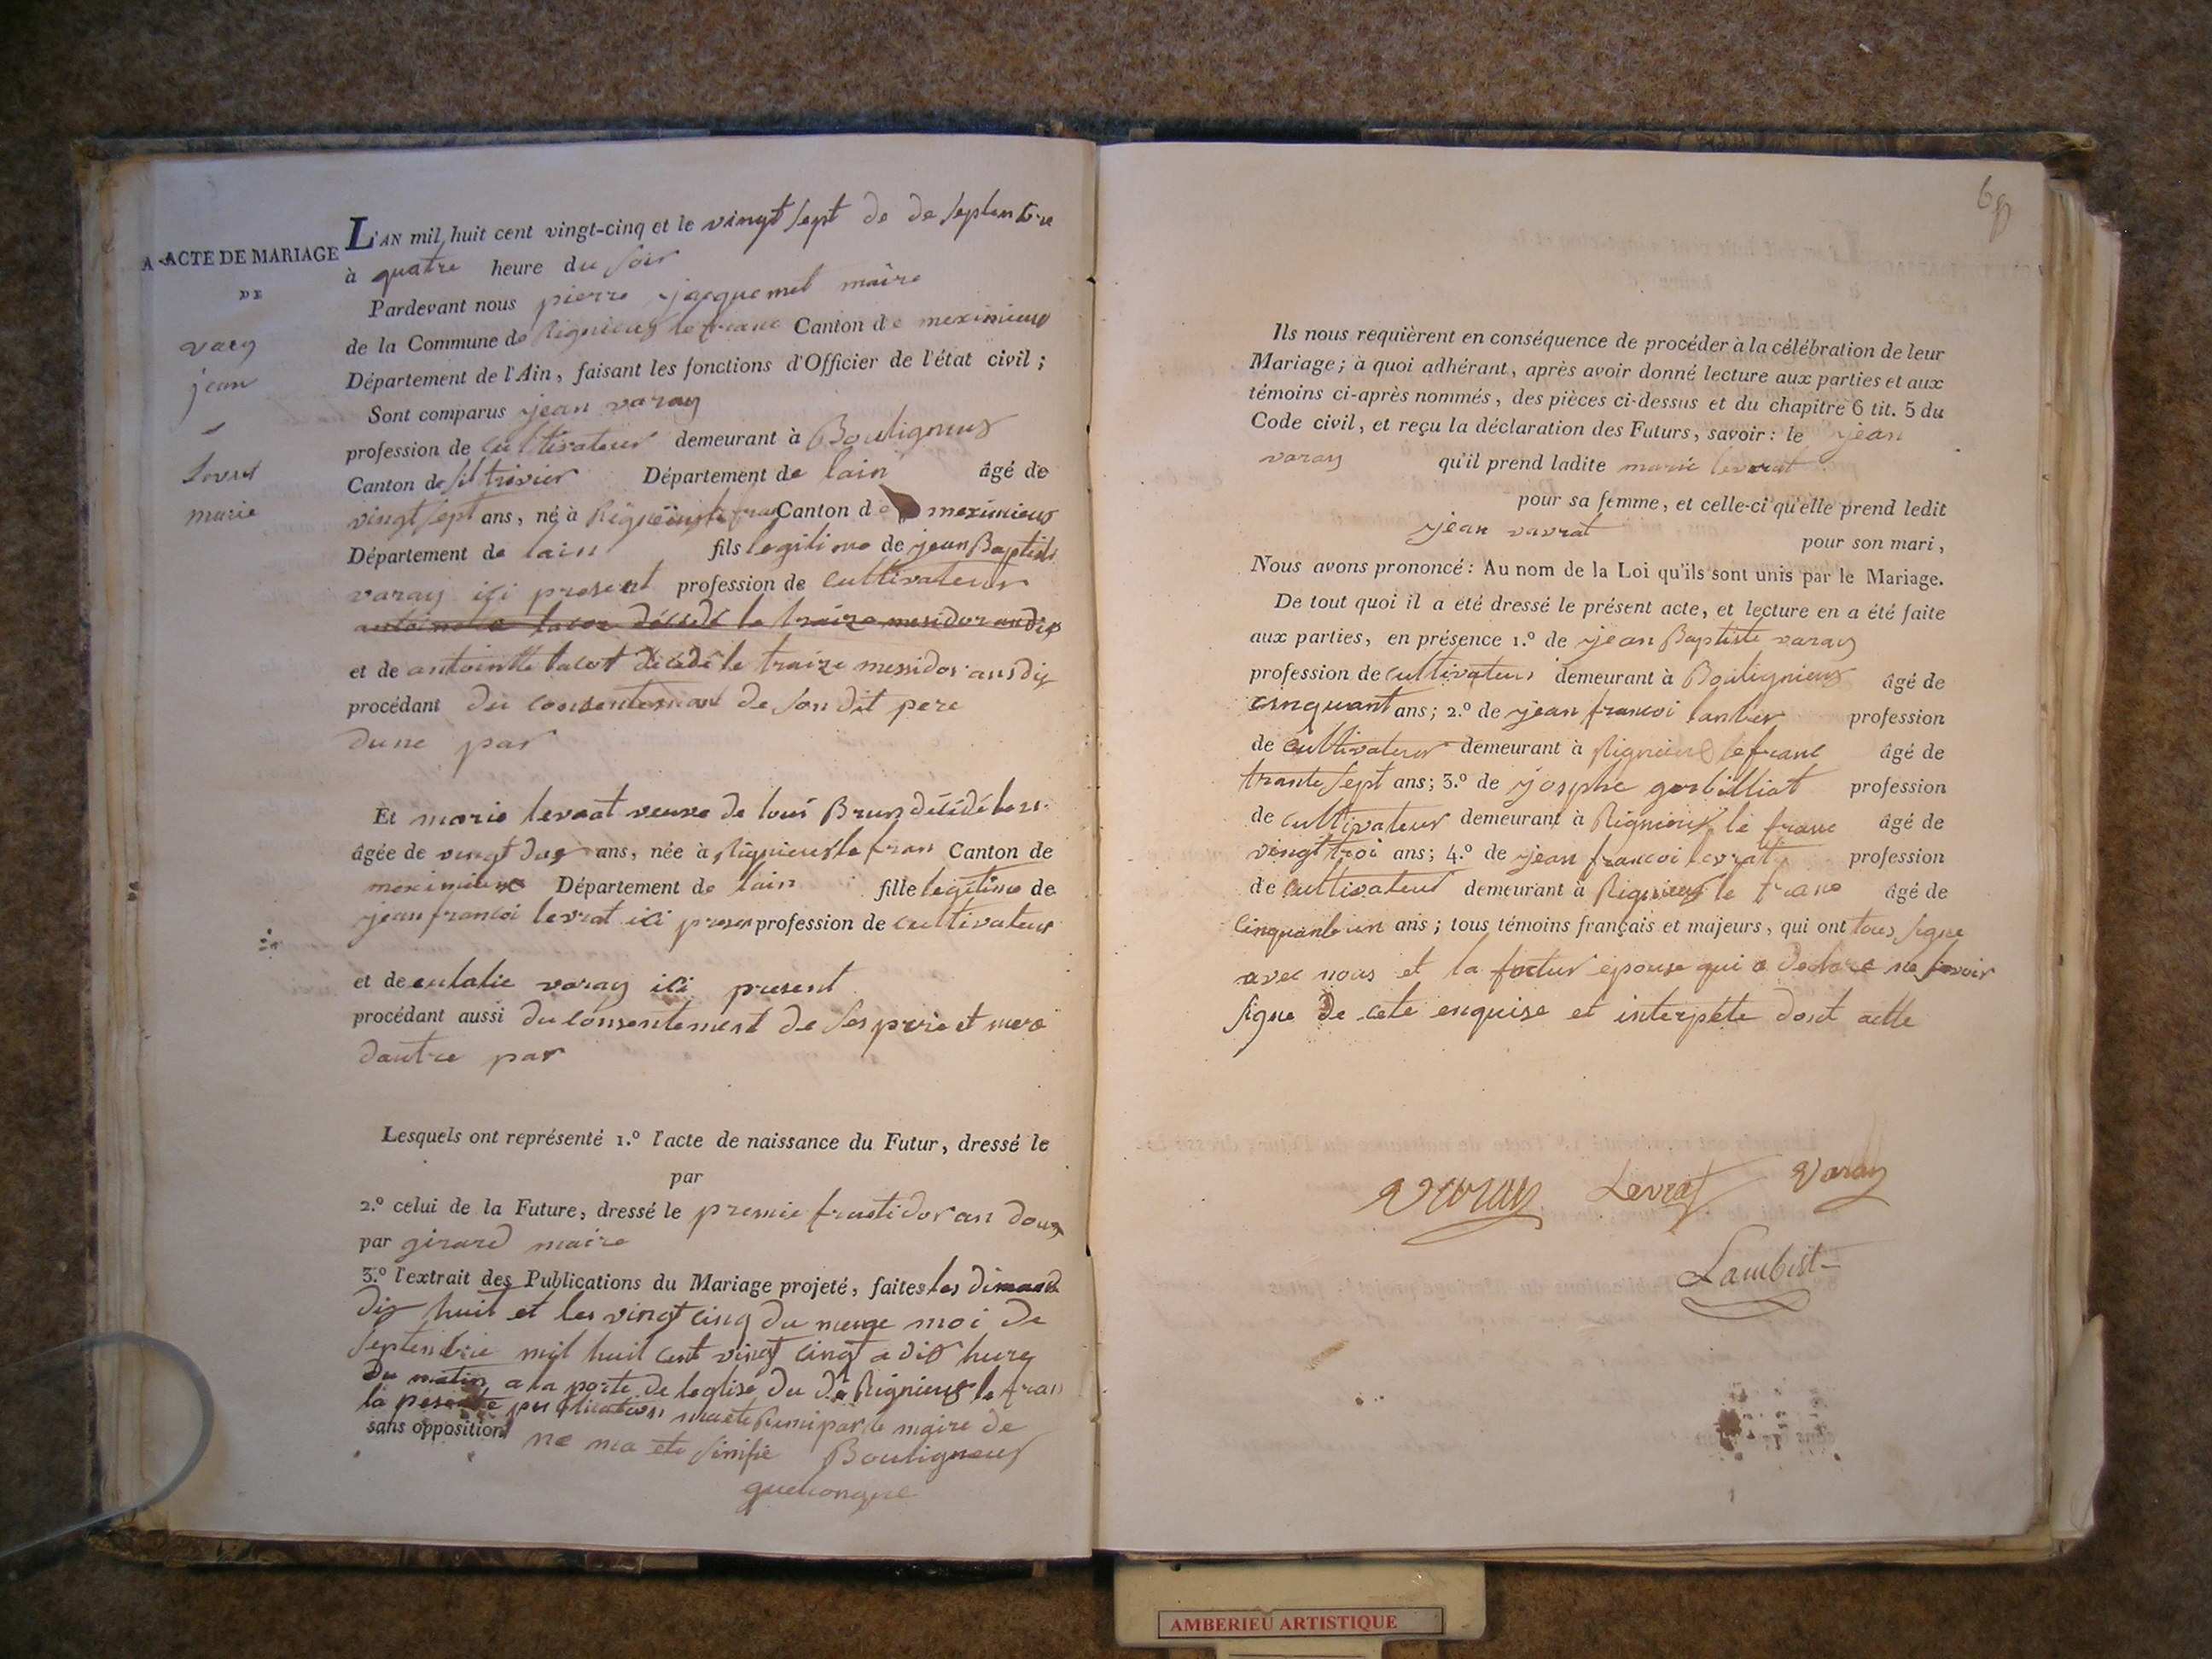 A ACTE DE MARIAGE
DE
vary
jean
&
Levrat
marie
L'AN mil huit cent vingt-cinq et le vingt sept de de septembre
à quatre heure du soir
Pardevant nous pierre jacquemet maire
de la Commune de Rignieux le franc Canton de meximieux
Département de l'Ain, faisant les fonctions d'Officier de l'état civil;
Sont comparus jean varay
profession de cultivateur demeurant à Bouligneux
Canton de st trivier Département de lain âgé de
vingt sept ans, né à Rignieux le fran Canton de meximieux
Département de lain fils legitime de jean Baptiste
varay ici present profession de cultivateur
antoinette tacot décédé le traize mesidor an dix
et de antointte tacot décédé le traize messidor ans dix
procédant du consentement de son dit pere
dune par
Et marie levrat veuve de loui Brun décédé
âgée de vingt deux ans, née à Rignieux le fran Canton de
meximieux Département de lain fille legitime de
jean francoi levrat ici presen profession de cultivateur
et de eulalie varay ici present
procédant aussi du consentement de ses pere et mere
dautre par
Lesquels ont représenté 1.º l'acte de naissance du Futur, dressé le
par
2.º celui de la Future, dressé le premie fructidor an douz
par girard maire
3.º l'extrait des Publications du Mariage projeté, faites les dimanch
dix huit et les vingt cinq du meme moi de
septembre mil huit cent vingt cinq a dix hure
du matin a la porte de leglise du dé Rignieux le fran
la presente publication par le maire de
sans opposition ne ma ete sinifié Bouligneux
quelconque
69
Ils nous requièrent en conséquence de procéder à la célébration de leur
Mariage; à quoi adhérant, après avoir donné lecture aux parties et aux
témoins ci-après nommés, des pièces ci-dessus et du chapitre 6 tit. 5 du
Code civil, et reçu la déclaration des Futurs, savoir: le jean
varay qu'il prend ladite marie levrat
pour sa femme, et celle-ci qu'elle prend ledit
jean vavrat pour son mari,
Nous avons prononcé: Au nom de la Loi qu'ils sont unis par le Mariage.
De tout quoi il a été dressé le présent acte, et lecture en a été faite
aux parties, en présence 1.º de jean Baptiste varay
profession de cultivateur demeurant à Bouligneux âgé de
cinquant ans; 2.º de jean francoi lanber profession
de cultivateur demeurant à Rignieux le franc âgé de
trante sept ans; 3.º de josphe gorbilliat profession
de cultivateur demeurant à Rignieux le franc âgé de
vingt troi ans; 4.º de jean francoi levrat profession
de cultivateur demeurant à Rignieux le franc âgé de
cinquante un ans; tous témoins français et majeurs, qui ont tous signe
avec nous et la futur epouse qui a declare ne savoir
signe de cete enquise et interpéte dont acte
Varay Levrat Varay
Lambert
AMBERIEU ARTISTIQUE